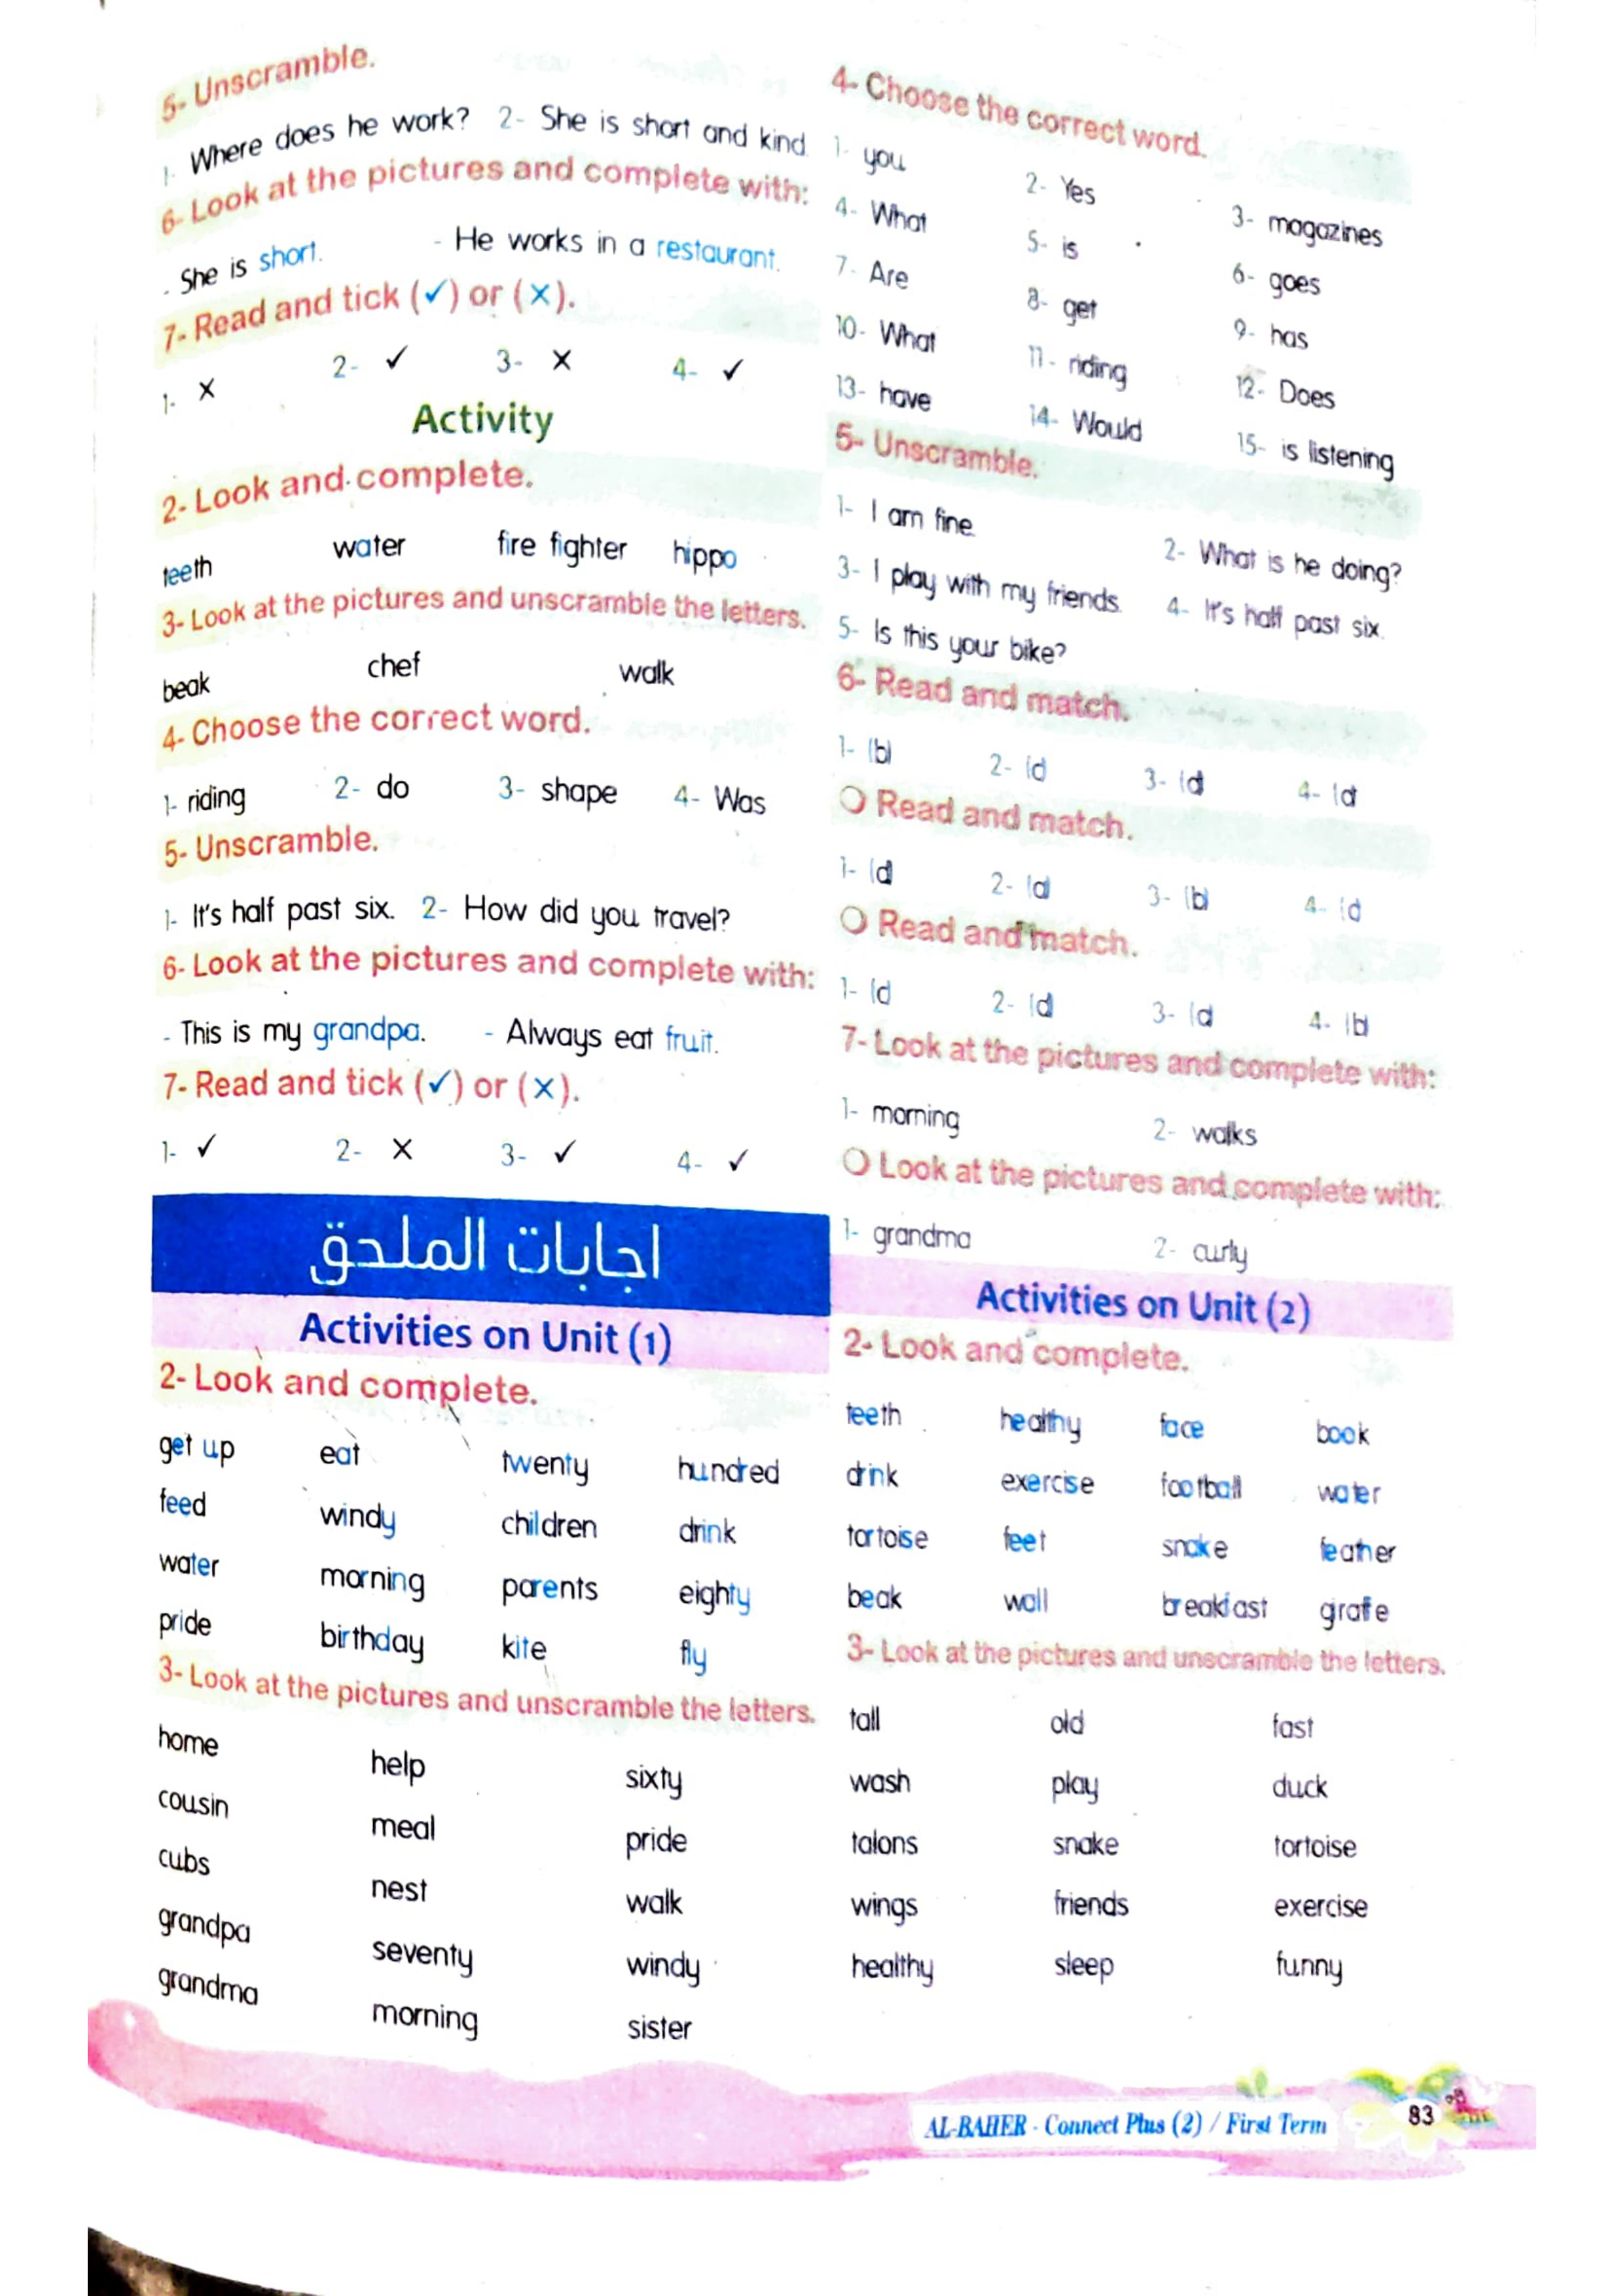 5- Unscramble.
1- Where does he work? 2- She is short and kind.
6- Look at the pictures and complete with:
- She is short. - He works in a restaurant.
7- Read and tick (✓) or (×).
1- × 2- ✓ 3- × 4- ✓
Activity
2- Look and complete.
teeth water fire fighter hippo
3- Look at the pictures and unscramble the letters.
beak chef walk
4- Choose the correct word.
1- riding 2- do 3- shape 4- Was
5- Unscramble.
1- It's half past six. 2- How did you travel?
6- Look at the pictures and complete with:
- This is my grandpa. - Always eat fruit.
7- Read and tick (✓) or (×).
1- ✓ 2- × 3- ✓ 4- ✓
اجابات الملحق
Activities on Unit (1)
2- Look and complete.
get up eat twenty hundred
feed windy children drink
water morning parents eighty
pride birthday kite fly
3- Look at the pictures and unscramble the letters.
home help sixty
cousin meal pride
cubs nest walk
grandpa seventy windy
grandma morning sister
4- Choose the correct word.
1- you 2- Yes 3- magazines
4- What 5- is 6- goes
7- Are 8- get 9- has
10- What 11- riding 12- Does
13- have 14- Would 15- is listening
5- Unscramble.
1- I am fine. 2- What is he doing?
3- I play with my friends. 4- It's half past six.
5- Is this your bike?
6- Read and match.
1- (b) 2- 3- 4-
Read and match.
1- 2- 3- (b) 4-
Read and match.
1- 2- 3- 4- (b)
7- Look at the pictures and complete with:
1- morning 2- walks
Look at the pictures and complete with:
1- grandma 2- curly
Activities on Unit (2)
2- Look and complete.
teeth healthy face book
drink exercise football water
tortoise feet snake feather
beak wall breakfast girafe
3- Look at the pictures and unscramble the letters.
tall old fast
wash play duck
talons snake tortoise
wings friends exercise
healthy sleep funny
AL-BAHER - Connect Plus (2) / First Term 83